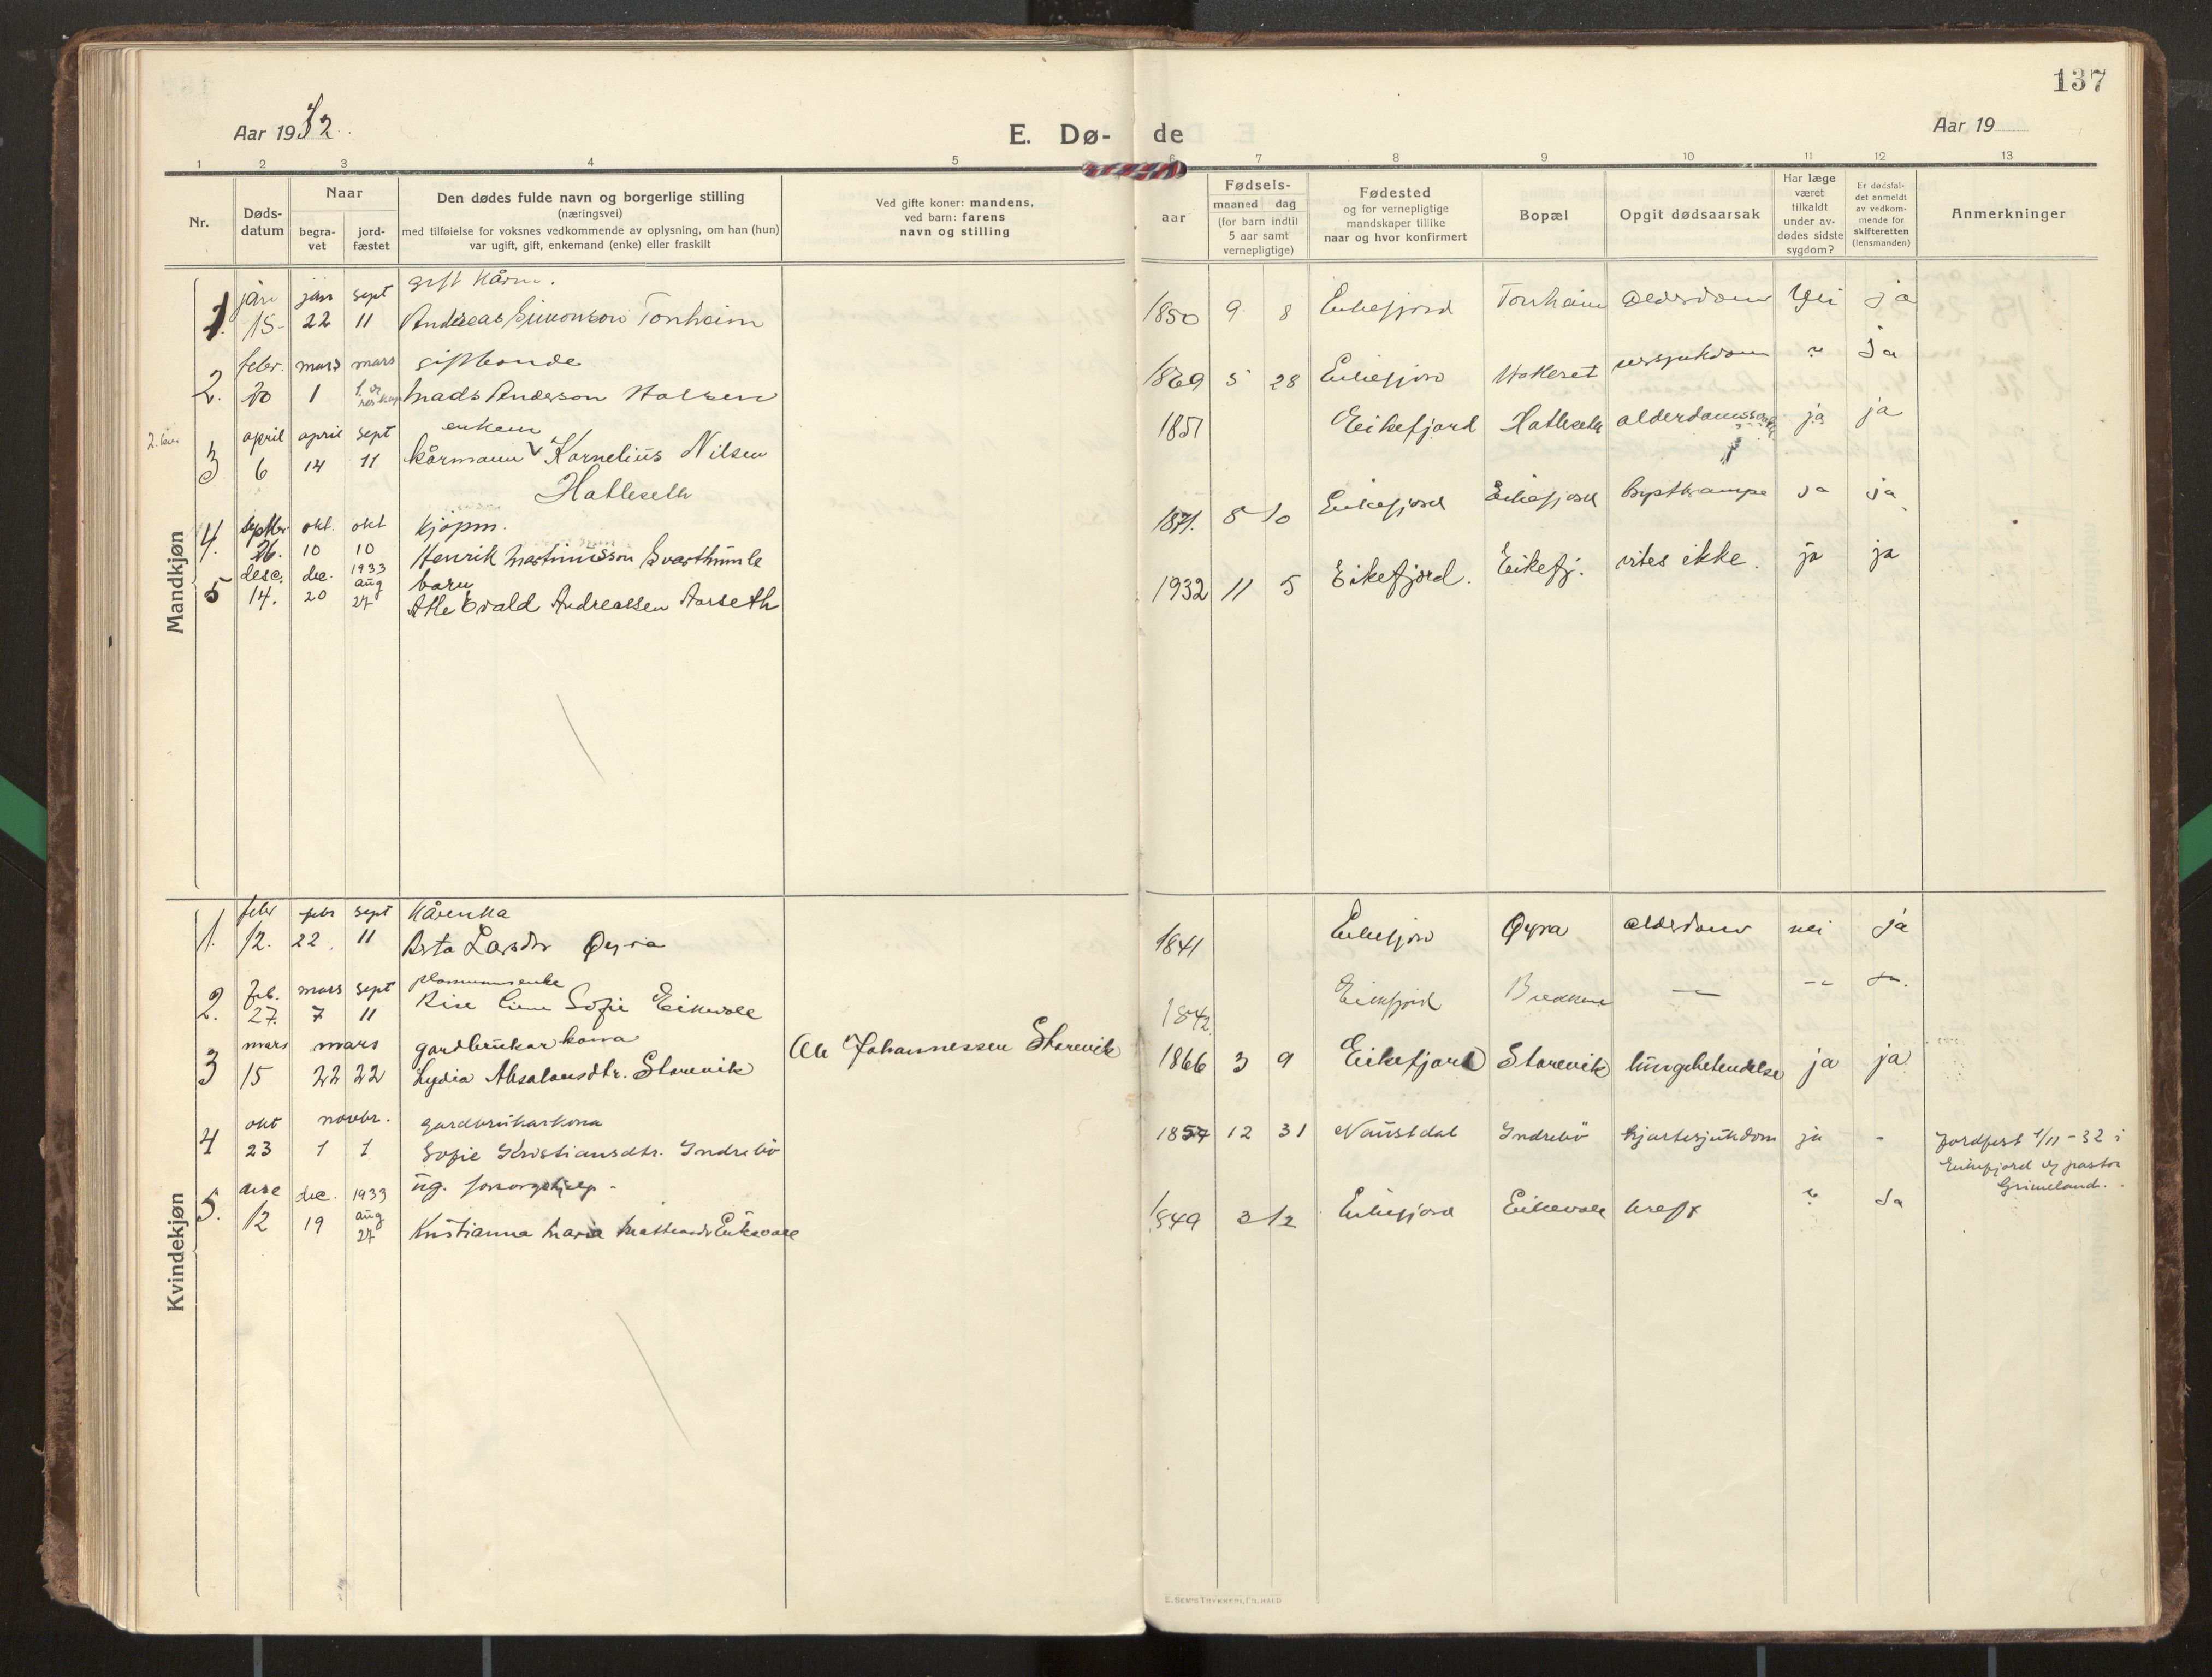 137
Aar 1932.
E. Dø- de
Aar 19
1 2 3 4 5 6 7 8 9 10 11 12 13
Nr.
Døds-
datum
Naar
begra-
vet
jord-
fæstet
Den dødes fulde navn og borgerlige stilling
(næringsvei)
med tilføielse for voksnes vedkommende av oplysning, om han (hun)
var ugift, gift, enkemand (enke) eller fraskilt
Ved gifte koner: mandens,
ved barn: farens
navn og stilling
aar
Fødsels-
maaned dag
(for barn indtil
5 aar samt
vernepligtige)
Fødested
og for vernepligtige
mandskaper tillike
naar og hvor konfirmert
Bopæl
Opgit dødsaarsak
Har læge
været
tilkaldt
under av-
dødes sidste
sygdom?
Er dødsfal-
det anmeldt
av vedkom-
mende for
skifteretten
(lensmanden)
Anmerkninger
Mandkjøn
jan jan sept gift kårm.
1. 15 22 11 Andreas Simonson Tonheim 1850 9 8 Eikefjord Tonheim alderdom nei ja
febr. mars mars gift bonde
2. 20 1 Mads Anderson 1869 5 28 Eikefjord " ja
april april sept enkem
3 6 14 11 kårmann Kornelius Nilsen 1851 Eikefjord Hatleseth ja ja
Hatleseth
septbr okt. okt kjøpm.
4. 26. 10 10 Henrik Martinusson Svarthumle 1871. 8 10 Eikefjord Eikefjord ja ja
desc. dec. 1933 barn
5 14. 20 aug Atle Evald Andreassen Aarseth 1932 11 5 Eikefjord. Eikefj. vites ikke. ja ja
27
Kvindekjøn
febr febr sept Kårenka
1. 12. 22. 11 Larsdtr Øyra 1841 Eikefjord Øyra alderdom nei ja
feb. mars sept plassmannsenke
2. 27. 7 11 Sofie Eikevoll 1842 Eikefjord — --
mars mars gardbrukarkona
3 15 22 22 Lydia Absalonsdtr. Storevik Ole Johannessen Storevik 1866 3 9 Eikefjord Storevik lungebetendelse ja ja
okt novbr. gardbrukarkona
4 23 1 1 Sofie Kristiansdtr. Indrebö 1857 12 31 Naustdal Indrebö hjartesjukdom ja - Jordfest 1/11-32 i
Eikefjord av pastor
Grimeland.
dec. 1933 ug.
5. 12 19 aug Kristianna Marie Eikevoll 1849 3 12 Eikefjord Eikevoll kreft " ja
27